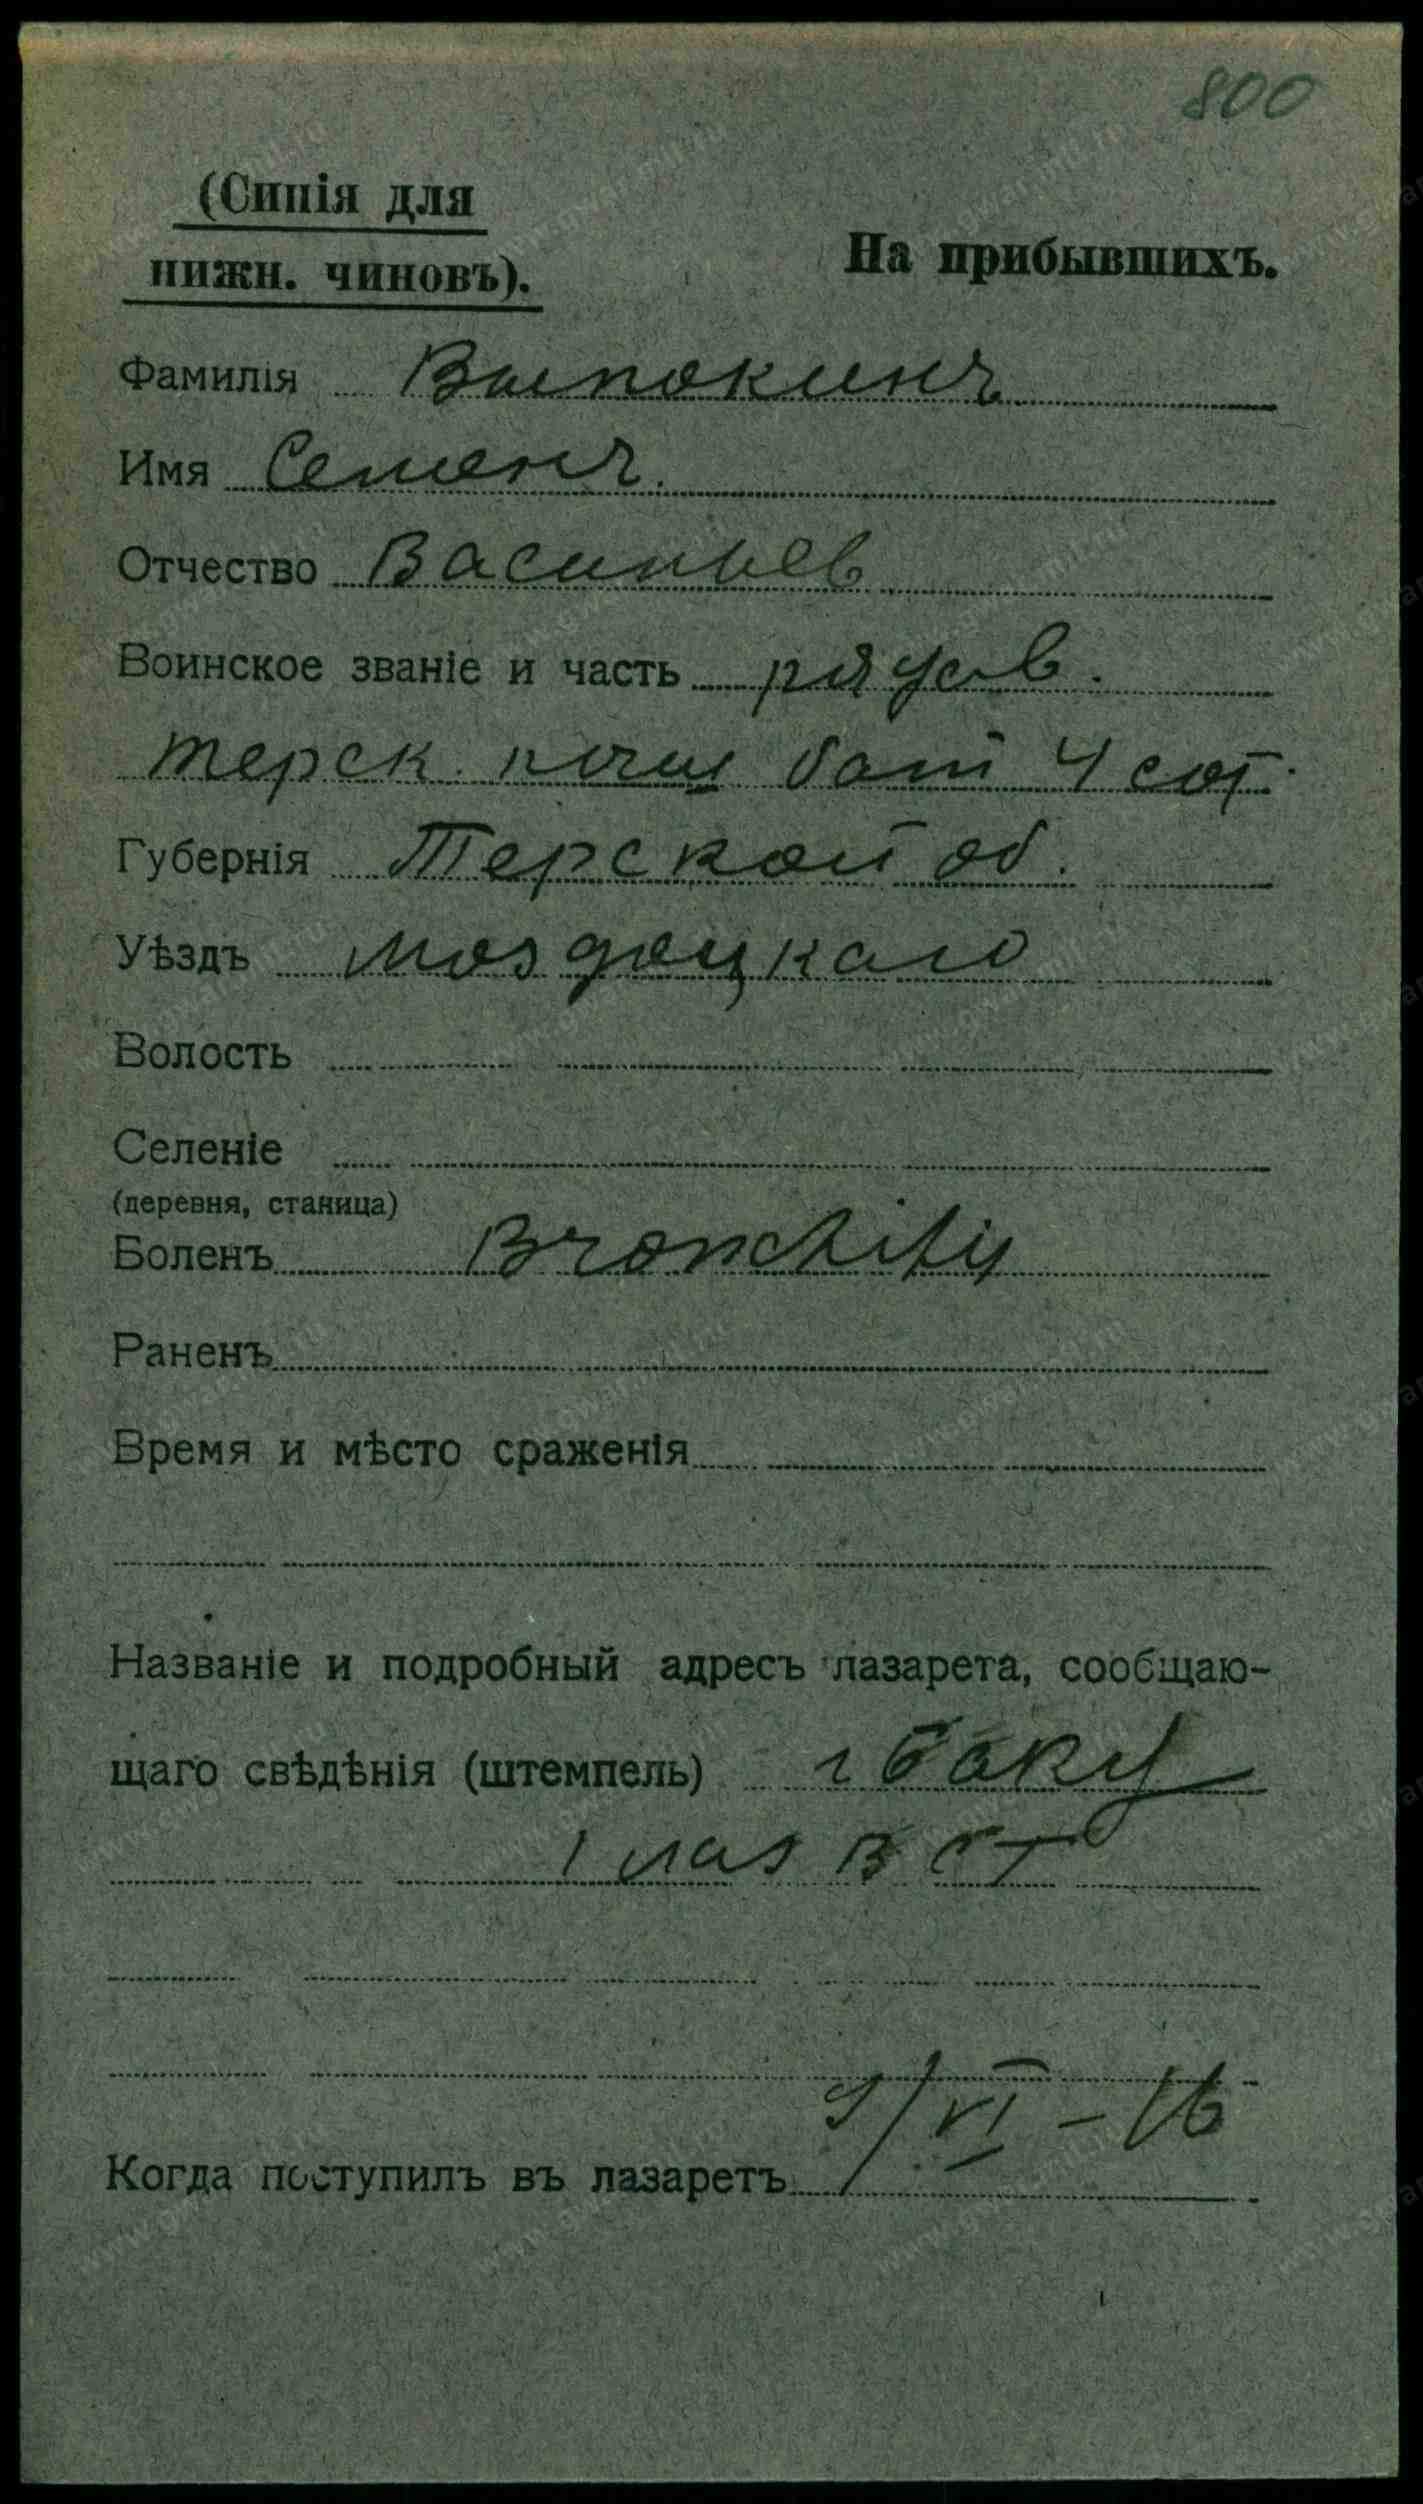 800
(Синія для
нижн. чиновъ).
На прибывшихъ.
Фамилія
Имя Семенъ.
Отчество Васильев
Воинское званіе и часть рядов.
терск. бат 4 сот.
Губернія Терской об.
Уѣздъ моздоцкаго
Волость
Селеніе
(деревня, станица)
Боленъ Bronchitis
Раненъ
Время и мѣсто сраженія
Названіе и подробный адресъ лазарета, сообщаю-
щаго свѣдѣнія (штемпель) г Баку
1 лаз В С Г
9/VI - 16
Когда поступилъ въ лазаретъ